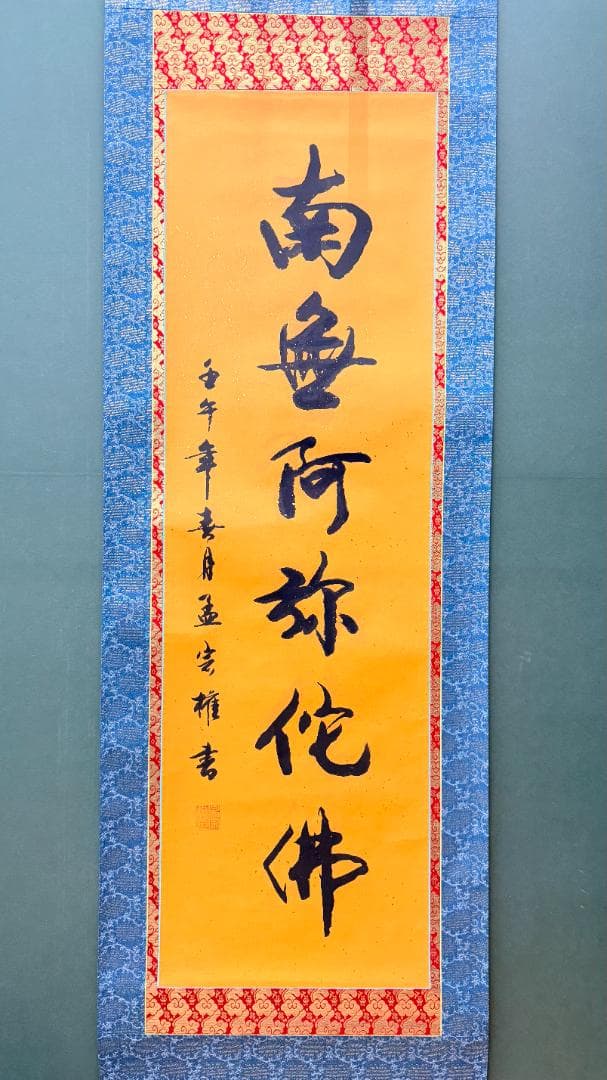 南無阿弥佗佛
壬午年春月孟宏權書